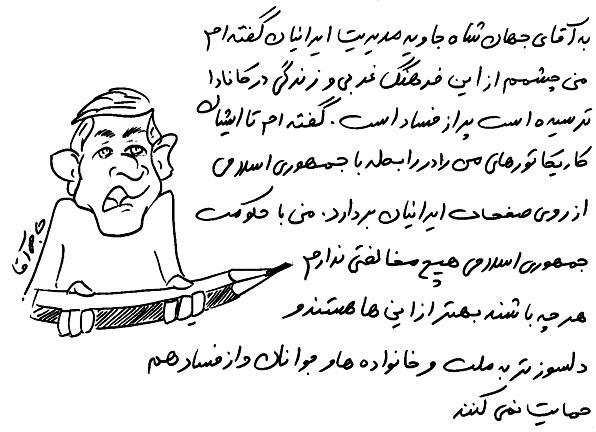 به آقای جهان شاه جاوید مدیریت ایرانیان گفته ام
من چشمم از این فرهنگ غربی و زندگی در کانادا
ترسیده است پر از فساد است. گفته ام تا ایشان
کاریکاتورهای من را در رابطه با جمهوری اسلامی
از روی صفحات ایرانیان بردارد. من با حکومت
جمهوری اسلامی هیچ مخالفتی ندارم
هر چه باشند بهتر از این ها هستند و
دلسوزتر به ملت و خانواده ها و جوانان و از فساد هم
حمایت نمی کنند